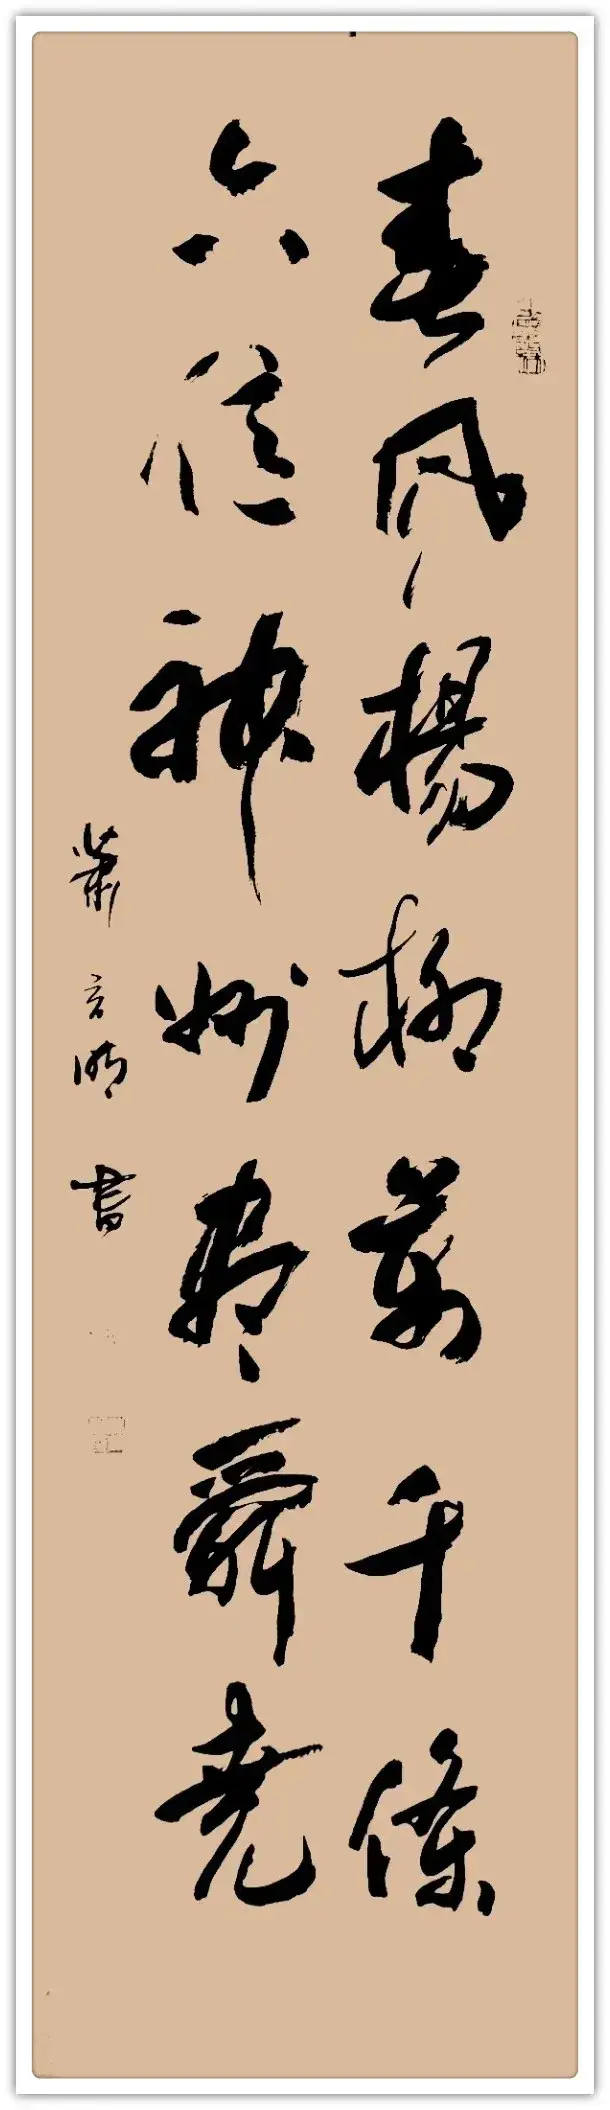 春風楊柳萬千條
六億神州盡舜堯
蕭 書